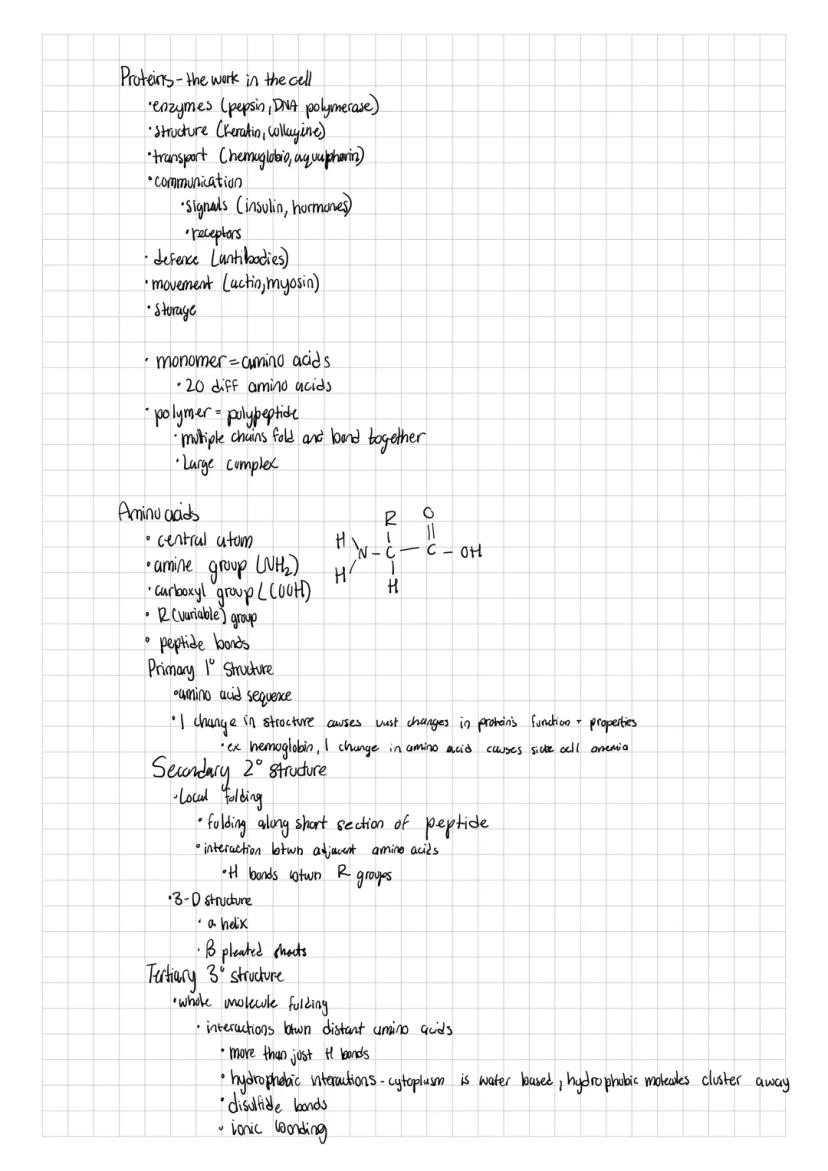 Proteins - the work in the cell
•enzymes (pepsin, DNA polymerase)
•structure (keratin, collagine)
•transport (hemoglobio, aquaphorin)
•communication
•signals (insulin, hormones)
•receptors
• defence (antibodies)
• movement (actin, myosin)
• storage
• monomer = amino acids
• 20 diff amino acids
• polymer = polypeptide
• multiple chains fold and bond together
• Large complex
Amino acids
• central atom
• amine group (NH₂)
• carboxyl group (COOH)
• R (variable) group
• peptide bonds
R O
H
N - C - C - OH
H H
Primary 1° Structure
•amino acid sequence
• 1 change in structure causes vast changes in protein's function + properties
• ex hemoglobin, 1 change in amino acid causes sickle cell anemia
Secondary 2° structure
• Local folding
• folding along short section of peptide
• interaction btwn adjacent amino acids
• H bonds btwn R groups
•3-D structure
• α helix
• β pleated sheets
Tertiary 3° structure
• whole molecule folding
• interactions btwn distant amino acids
• more than just H bonds
• hydrophobic interactions - cytoplasm is water based, hydrophobic molecules cluster away
• disulfide bonds
• ionic bonding